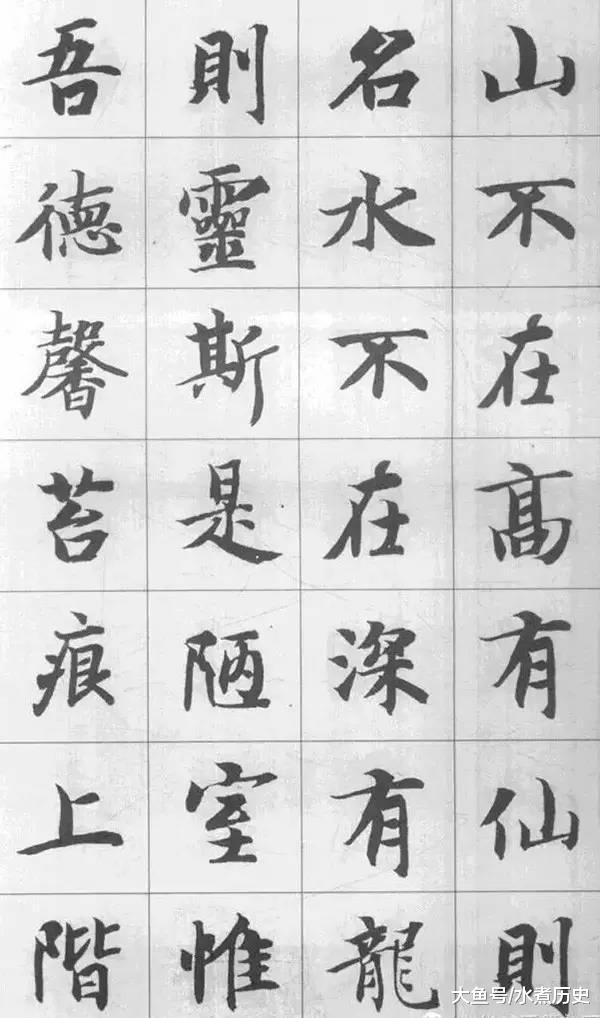 山不在高有仙則
名水不在深有龍
則靈斯是陋室惟
吾德馨苔痕上階
大鱼号/水煮历史